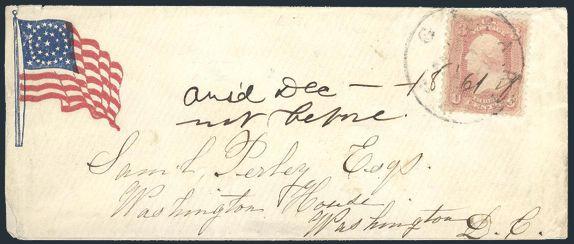 and Dec — 18 '61
not before.
Saml. Perley Esqr.
Washington House
Washington D.C.